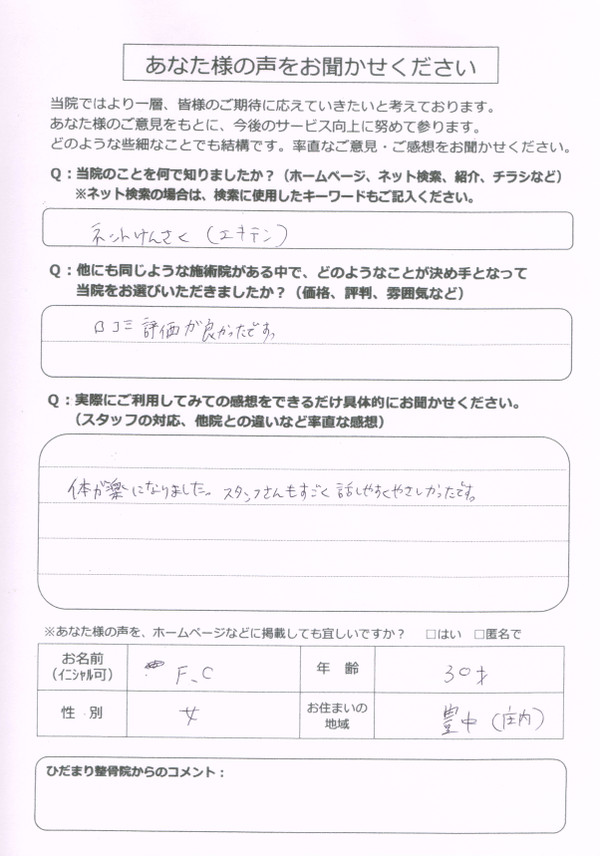 あなた様の声をお聞かせください
当院ではより一層、皆様のご期待に応えていきたいと考えております。
あなた様のご意見をもとに、今後のサービス向上に努めて参ります。
どのような些細なことでも結構です。率直なご意見・ご感想をお聞かせください。
Q：当院のことを何で知りましたか？（ホームページ、ネット検索、紹介、チラシなど）
※ネット検索の場合は、検索に使用したキーワードもご記入ください。
ネットけんさく（エキテン）
Q：他にも同じような施術院がある中で、どのようなことが決め手となって
当院をお選びいただきましたか？（価格、評判、雰囲気など）
口コミ評価が良かったです。
Q：実際にご利用してみての感想をできるだけ具体的にお聞かせください。
（スタッフの対応、他院との違いなど率直な感想）
体が楽になりました。スタッフさんもすごく話しやすくやさしかったです。
※あなた様の声を、ホームページなどに掲載しても宜しいですか？　□はい　□匿名で
お名前
（イニシャル可）
F.C
年　齢
30才
性　別
女
お住まいの
地域
豊中（庄内）
ひだまり整骨院からのコメント：